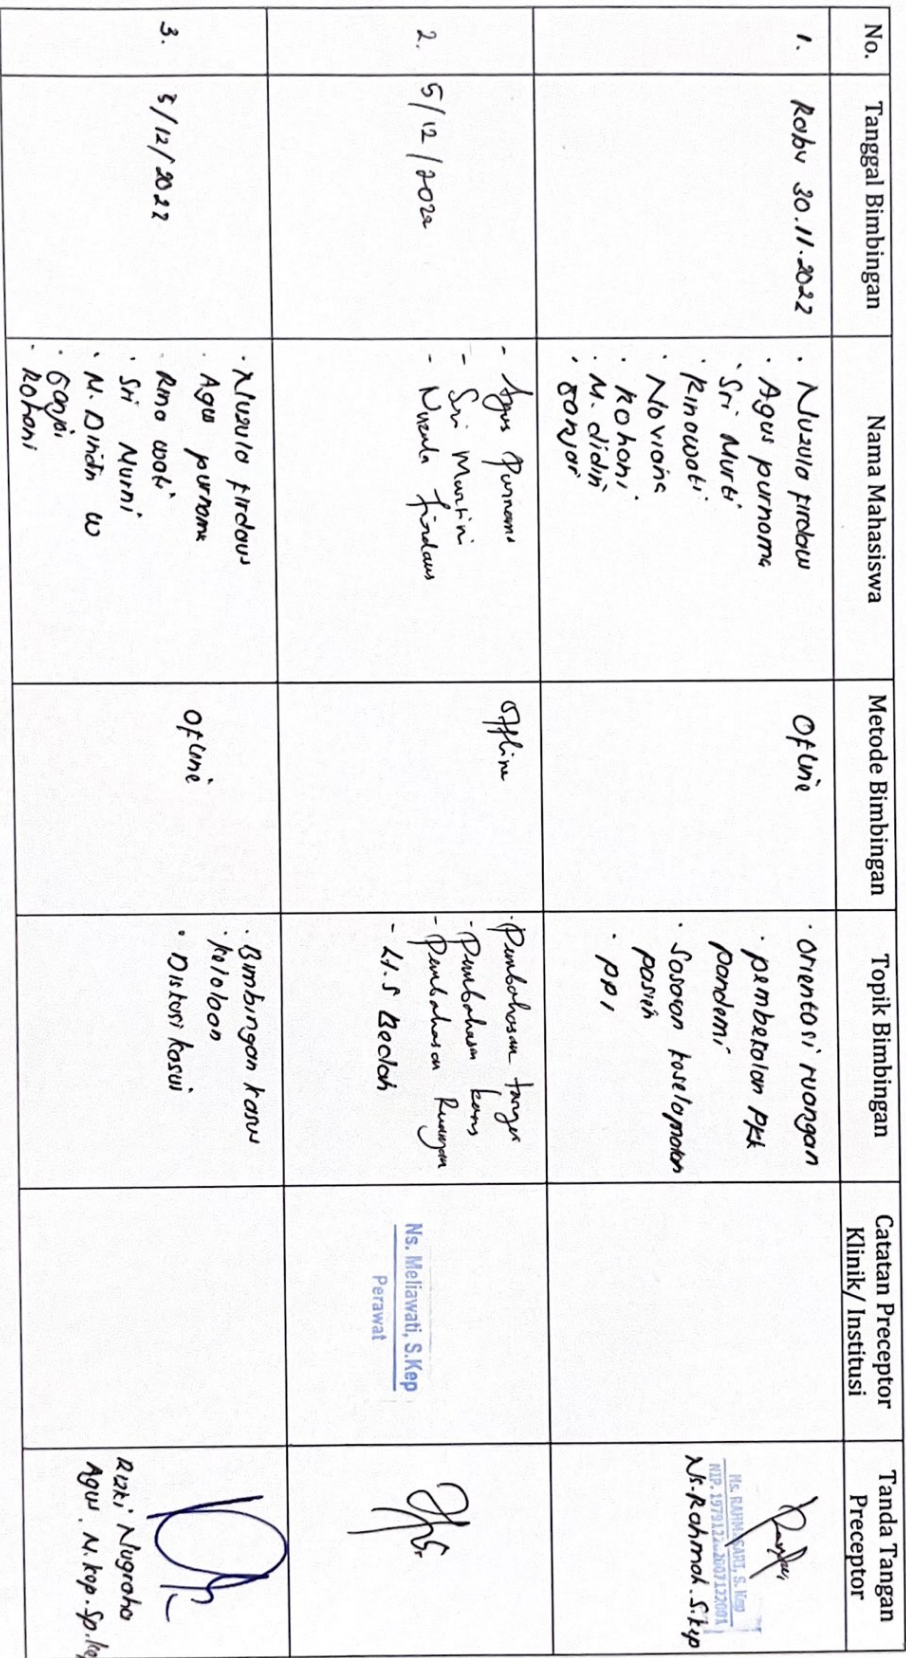 No.
Tanggal Bimbingan
Nama Mahasiswa
Metode Bimbingan
Topik Bimbingan
Catatan Preceptor
Klinik/ Institusi
Tanda Tangan
Preceptor
1.
Rabu 30.11.2022
• Nuzula Firdaus
• Agus purnama
• Sri Murti
• Rinawati
• Noviana
• Rohani
• M. didin
• Sanjai
Ofline
• orientasi ruangan
• pembekalan PKK
pandemi
• Sasaran keselamatan
pasien
• PPI
Ns. RAHMASARI, S. Kep
Ns. Rahmah. S.kep
2.
5/12/2022
- Agus Purnama
- Sri Murtini
- Nuzula Firdaus
Offline
• Pembahasan
• Pembahasan kasus
- Pembahasan Ruangan
- Bedah
Ns. Meliawati, S.Kep
Perawat
3.
5/12/2022
• Nuzula Firdaus
• Agus purnama
• Rina wati
• Sri Murni
• M. Dindin W
• Sanjai
• Rohani
Ofline
• Bimbingan kasus
• kelolaan
• Diskusi kasus
Rizki Nugraha
Agus. M.kep.Sp.kep